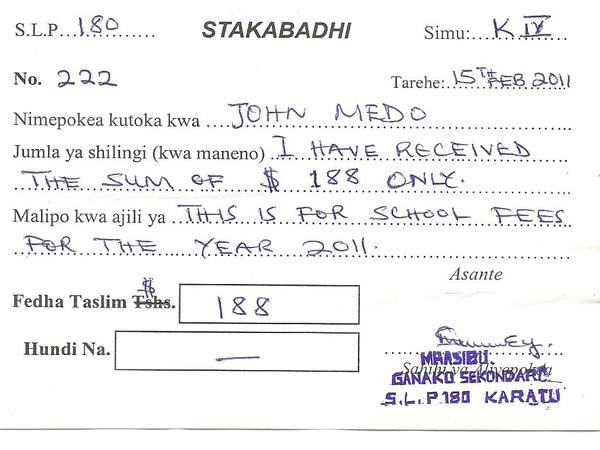 S.L.P. 180 STAKABADHI Simu: K IV
No. 222 Tarehe: 15TH FEB 2011
Nimepokea kutoka kwa JOHN MEDO
Jumla ya shilingi (kwa maneno) I HAVE RECEIVED
THE SUM OF $ 188 ONLY.
Malipo kwa ajili ya THIS IS FOR SCHOOL FEES
FOR THE YEAR 2011.
Asante
$
Fedha Taslim Tshs. 188
Hundi Na. —
MHASIBU.
Sahihi ya Aliyepokea
GANAKO SEKONDARI.
S.L.P 180 KARATU